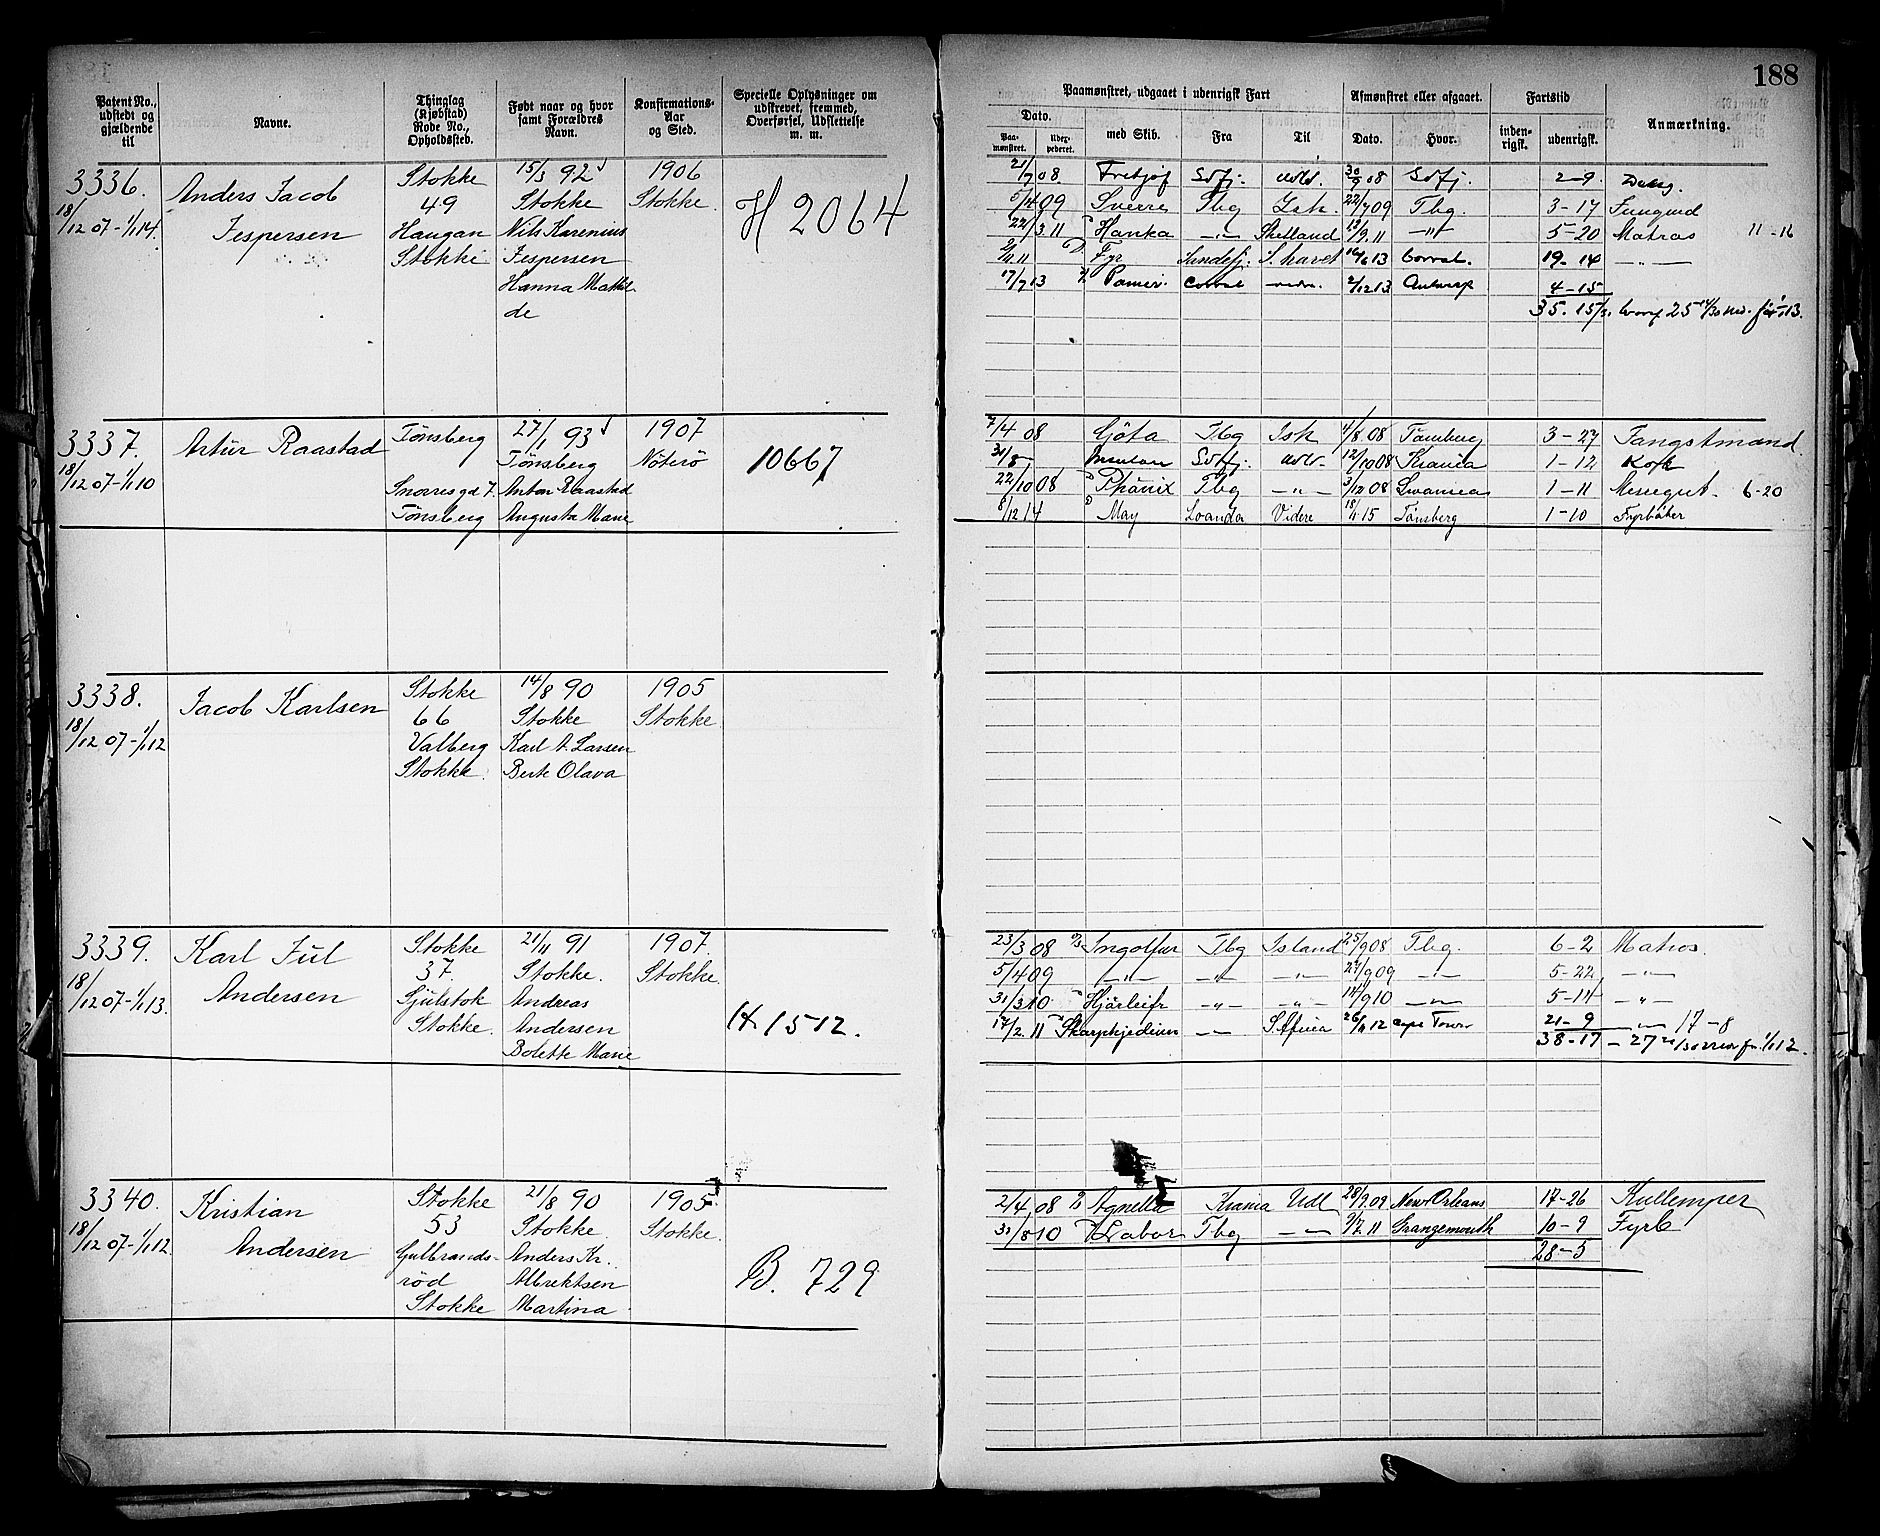 188
Patent No., udstedt og gjældende til
Navne.
Thinglag (Kjøbstad) Rode No., Opholdssted.
Født naar og hvor samt Forældres Navn.
Konfirmations-Aar og Sted.
Specielle Oplysninger om udskrevet, fremmed, Overførsel, Udslettelse m. m.
Paamønstret, udgaaet i udenrigsk Fart
Afmønstret eller afgaaet.
Fartstid
Anmærkning.
Dato.
Paa-mønstret.
med Skib.
Fra
Til
Dato.
Hvor.
inden-rigsk.
udenrigsk.
3336.
18/12 07-1/1 14.
Anders Jacob
Jespersen
Stokke
49
Haugan
Stokke
15/3 92
Stokke
Nils Karenius
Jespersen
Hanna Mathil
de
1906
Stokke.
H 2064
21/7 08. Fretjof Sdfj. 30/9 08 Sdfj. 2-9.
5/4 09 Sverre Tbg Isk. 22/7 09 Tbg. 3-17
22/3 11 Hanka -"- Shetland 13/9 11 -"- 5-20 Matros 11-16
11 Fyr Sandefj. S. havet 13 Corral. 19-14 -"-
17/7 13 Corral 2/12 13 4-15
35.15
3337.
18/12 07-1/1 10
Artur Raastad
Tønsberg
Snorresgd 7.
Tønsberg
27/1 93
Tønsberg
Anton Raastad
Augusta Marie
1907
Nøterø
10667
7/4 08 Göta Tbg Isk 4/8 08 Tønsberg 3-27 Fangstmand
31/8 Sdfj. 12/10 08 Krania 1-12 Kok
22/10 08 Phönix Tbg -"- 3/12 08 Swansea 1-11 Messegut. 6-20
8/12 14 May Loanda Videre 18/1 15 Tønsberg 1-10 Fyrbøter
3338.
18/12 07-1/1 12
Jacob Karlsen
Stokke
66
Valberg
Stokke.
14/8 90
Stokke
Karl A. Larsen
Berte Olava
1905
Stokke.
3339.
18/12 07-1/1 13.
Karl Jul
Andersen
Stokke
37.
Gjulstok
Stokke.
21/11 91
Stokke.
Andreas
Andersen
Bolette Marie
1907
Stokke.
H 1512.
23/3 08 Ingolfur Tbg Island 25/9 08 Tbg. 6-2 Matros.
5/4 09 -"- -"- -"- 27/9 09 -"- 5-22 -"-
31/3 10 Hjörleifr -"- -"- 14/9 10 -"- 5-14 -"-
17/2 11 Skarphjedinn -"- S. Africa 26/11 12 Cape Town 21-9 -"- 17-8
38-17
3340.
18/12 07-1/1 12
Kristian
Andersen
Stokke
53
Gulbrands-
rød
Stokke
21/8 90
Stokke.
Anders Kr.
Albrektsen
Martina
1905
Stokke.
B. 729
2/4 08 Agnella Krania Udl 28/9 09 New Orleans 17-26 Kullemper
30/8 10 Labor Tbg -"- 9/2 11 Grangemouth 10-9 Fyrb
28-5